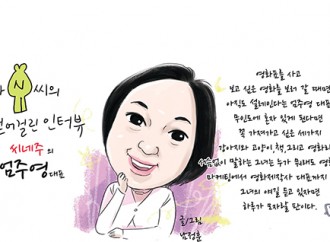 씨의
걸어걸린 인터뷰
씨네주의
엄주영대표
글/그림
남정훈
영화표를 사고
보고 싶은 영화를 보러 갈 때면
아직도 설레인다는 엄주영 대표
무인도에 혼자 있게 된다면
꼭 가져가고 싶은 세가지
강아지와 고양이, 책, 그리고 영화라
서슴없이 말하는 그녀는 누가 뭐래도 영화
마케팅에서 영화제작사 대표까지
그녀의 얘길 듣고 있자면
하루가 모자랄 판이다.